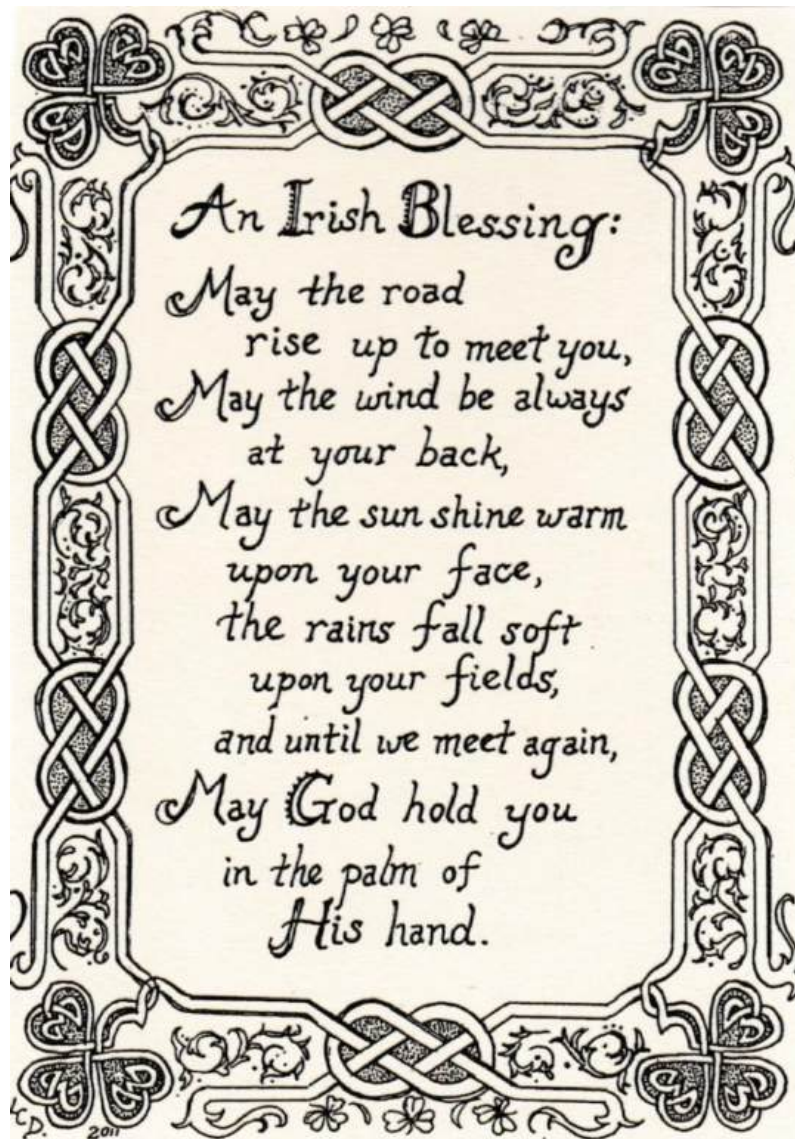 An Irish Blessing:
May the road
rise up to meet you,
May the wind be always
at your back,
May the sun shine warm
upon your face,
the rains fall soft
upon your fields,
and until we meet again,
May God hold you
in the palm of
His hand.
LCD. 2011